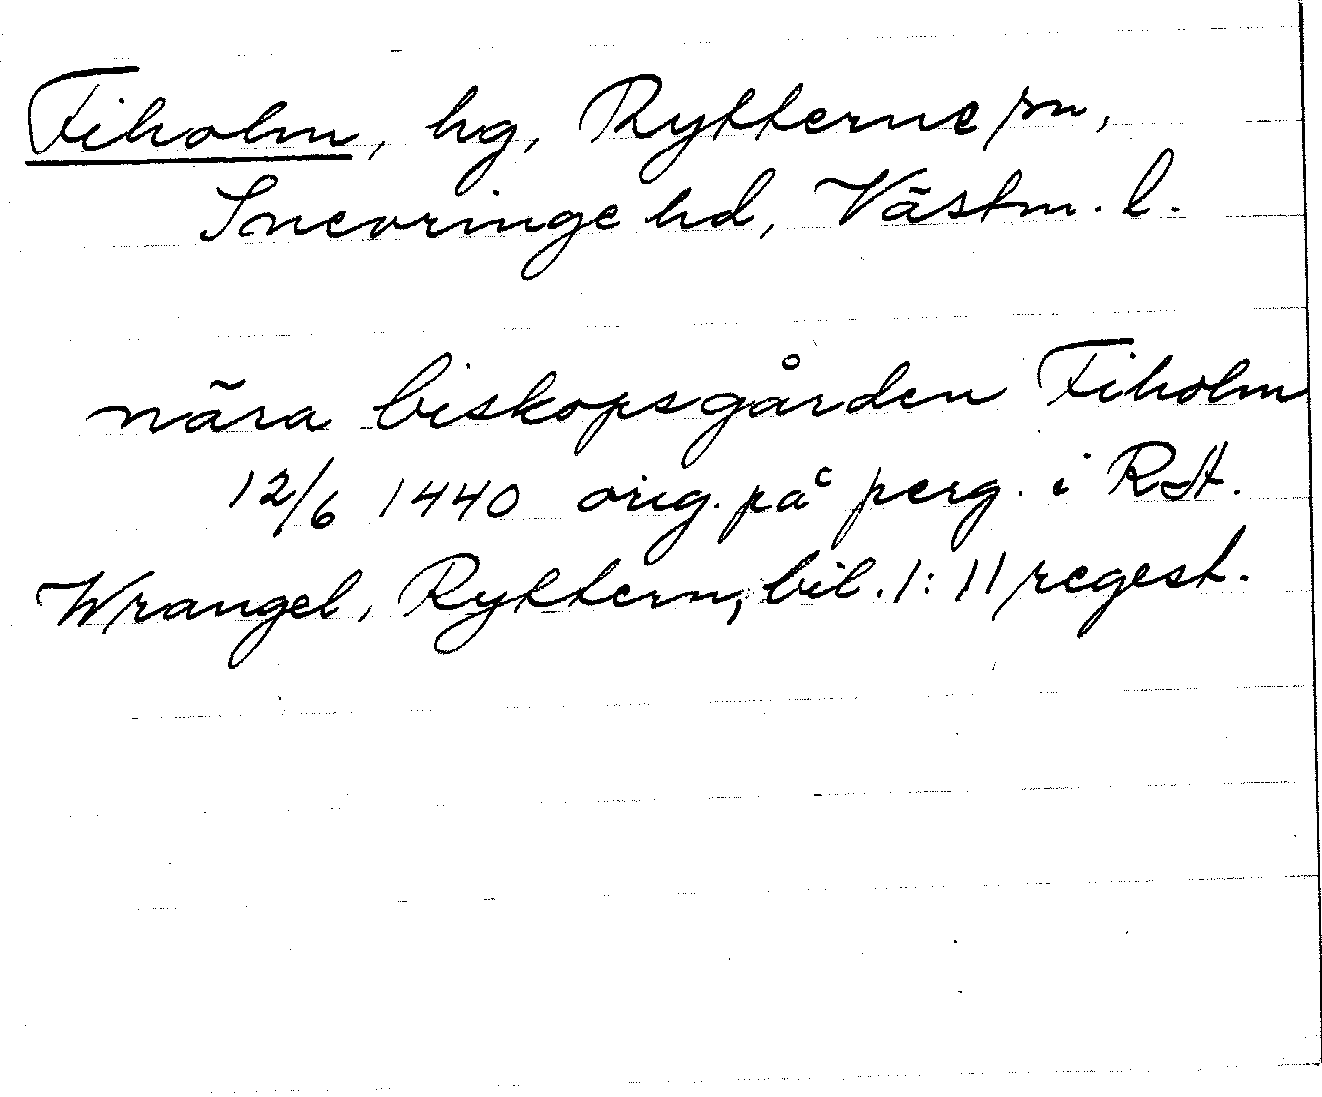 Fiholm, hg, Rytterne sn,
Snevringe hd, Västm. l.
nära biskopsgården Fiholm
12/6 1440 orig. på perg. i RA.
Wrangel, Ryttern, bil. 1:11 regest.